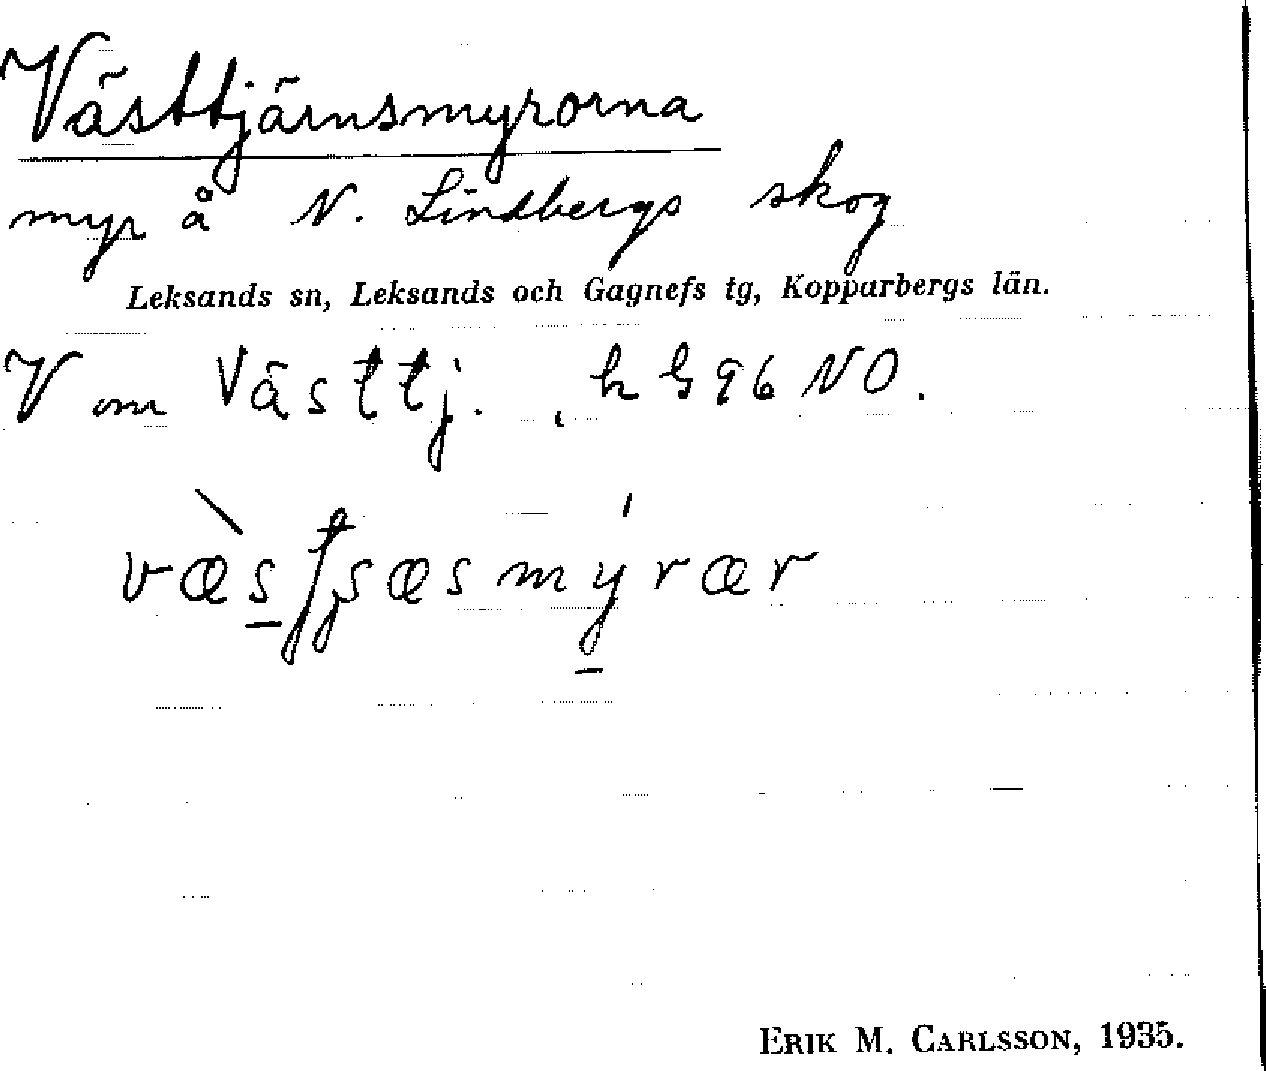 Västtjärnsmyrorna
myr å N. Lindbergs skog
Leksands sn, Leksands och Gagnefs tg, Kopparbergs län.
V om Västtj.
NO.
ERIK M. CARLSSON, 1935.